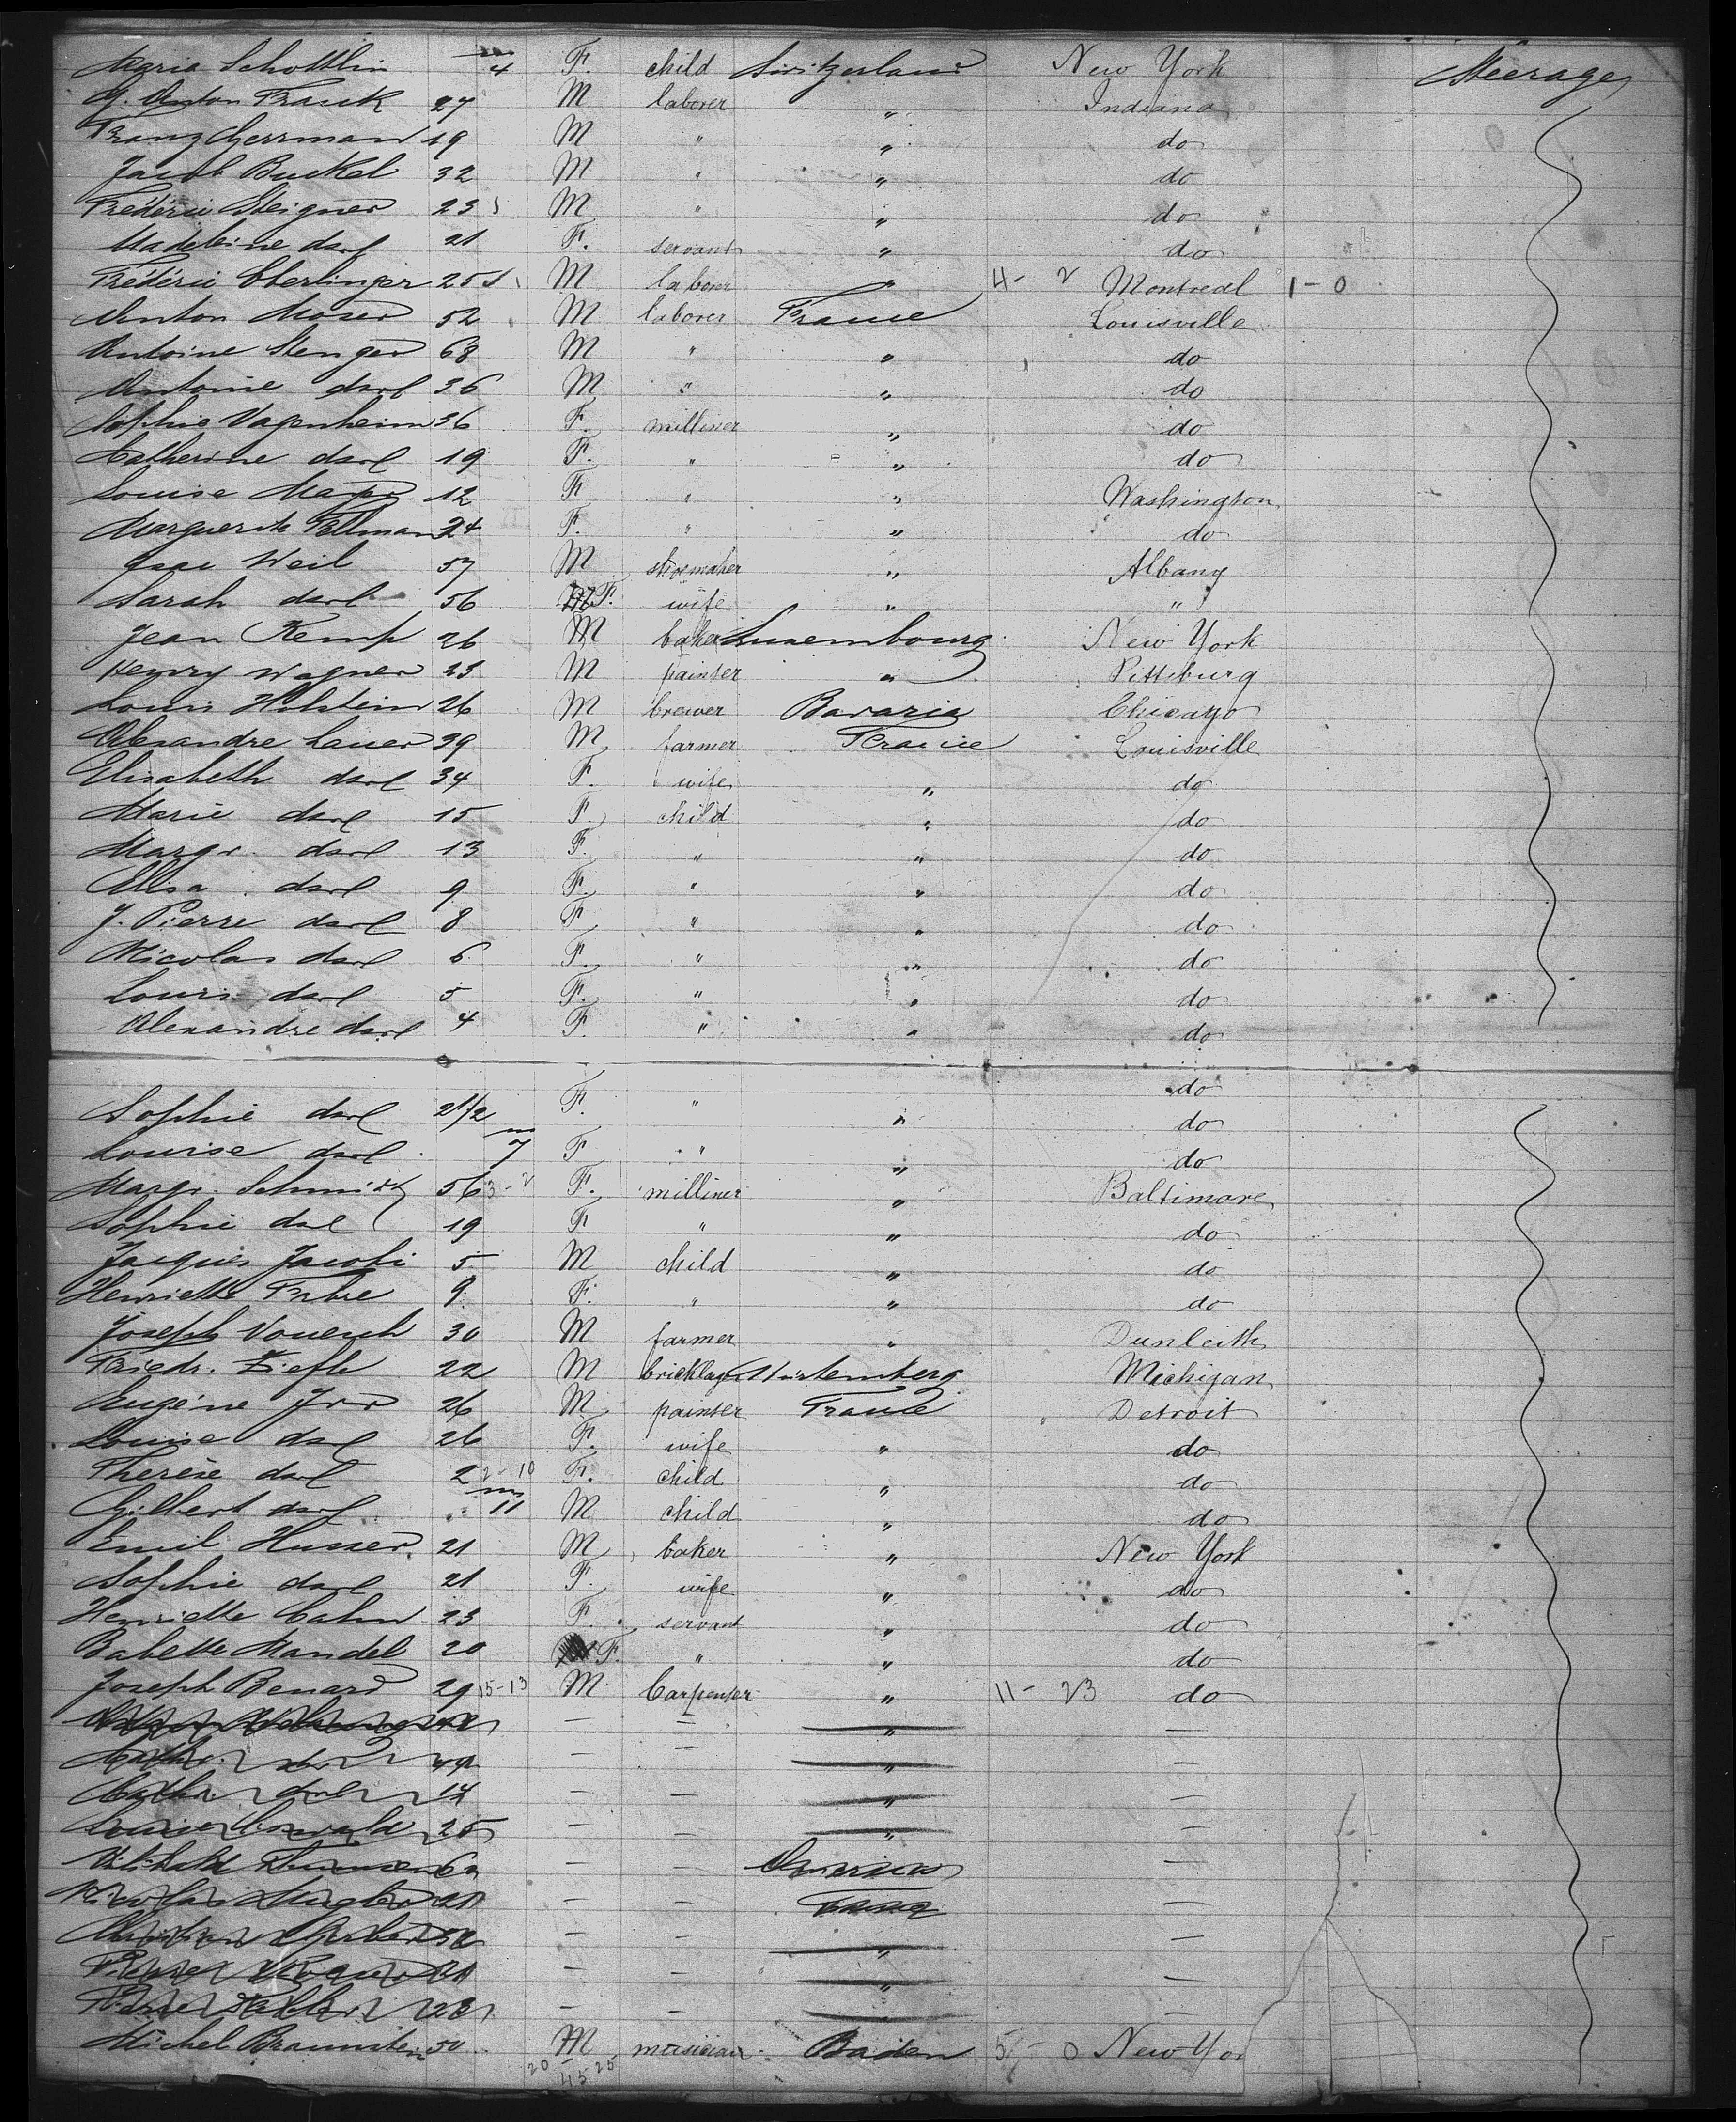 Maria Schottlin m/4 F. child Switzerland New York Steerage
J. Anton Frank 27 M laborer " Indiana
Franz Herrmann 19 M " " do
Jacob Buckel 32 M " " do
Frédéric Steigner 23 M " " do
Madeleine do 21 F. servant " do
Frédéric Eberlinger 25 M laborer " 4- 2 Montreal 1-0
Anton Moser 52 M laborer France Louisville
Antoine Stenger 68 M " " do
Antoine do 36 M " " do
Sophie Vagenheim 36 F. milliner " do
Catherine do 19 F. " " do
Louise 12 F " " Washington
Marguerite 24 F. " " do
Isaac Weil 57 M shoemaker " Albany
Sarah do 56 F. wife " "
Jean Kemp 26 M baker Luxembourg New York
Henry Wagner 23 M painter " Pittsburg
Louis Holstein 26 M brewer Bavaria Chicago
Alexandre Lauer 39 M farmer France Louisville
Elisabeth do 34 F. wife " do
Marie do 15 F. child " do
Margr. do 13 F. " " do
Elisa do 9 F. " " do
J. Pierre do 8 F " " do
Nicolas do 6 F. " " do
Louis do 5 F. " " do
Alexandre do 4 F. " " do
do
Sophie do 2 1/2 F. " " do
Louise do m/7 F " " do
Margr. Schmidt 56 3-2 F. milliner " Baltimore
Sophie do 19 F " " do
Jacques Jacobi 5 M child " do
Henriette 9 F. " " do
Joseph 30 M farmer " Dunleith
Friedr. Ziefle 22 M bricklayer Wurtemberg Michigan
Eugéne 26 M painter France Detroit
Louise do 26 F. wife " do
Therése do 2 2-10 F. child " do
Gilbert do m/11 M child " do
Emil Husser 21 M baker " New York
Sophie do 21 F. wife " do
Henriette Cahn 23 F. servant " do
Babette Mandel 20 F. " " do
Joseph Benard 29 15-13 M Carpenter " 11- 23 do
— — " —
— — " —
14 — — " —
25 — — " —
— — America —
— — France —
— — " —
— — " —
— — " —
Michel Braunstein 50 M musician Baden 5- 0 New Yor
20 45 25